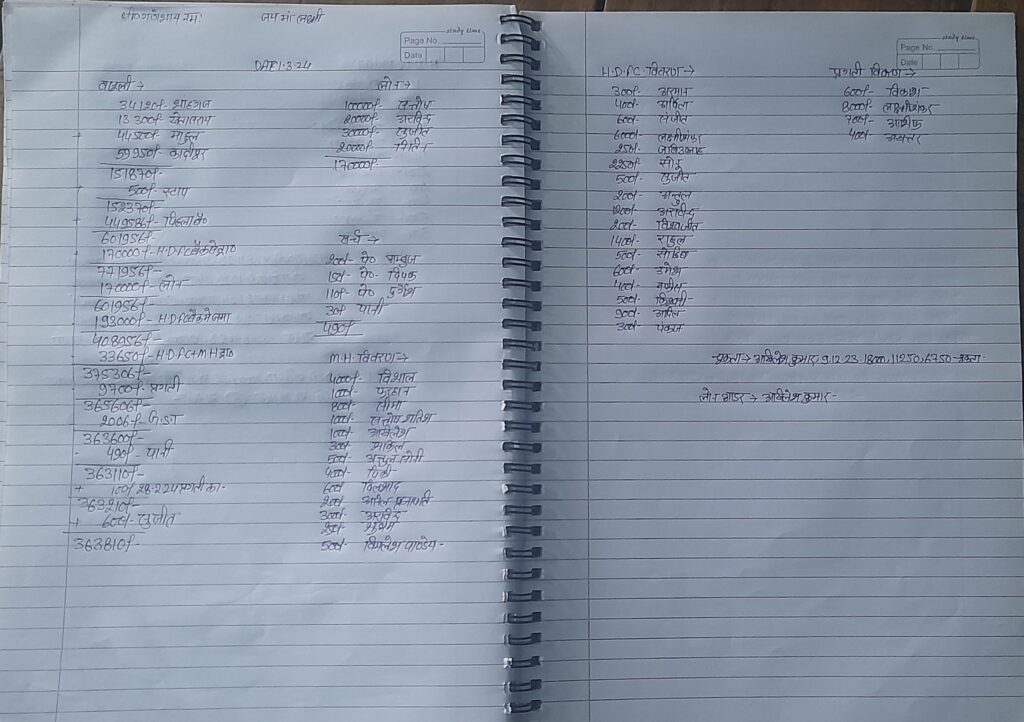 श्री गणेशाय नमः
जय माँ लक्ष्मी
study time
Page No
Date
DATE 1.3.24
वसूली →
34120/- शाहगंज
13300/- खेतासराय
+ 44500/-
59950/-
151870/-
500/- स्टाप
152370/-
+ 449586/- पिछला बै०
601956/-
170000/- H.D.F.C बैंक से
771956/-
- 170000/- लोन
601956/-
193000/- H.D.F.C बैंक में जमा
408956/-
33650/- H.D.F.C+M.H
375306/-
9700/- प्रगती
365606/-
2006/- G.S.T
363600/-
- 490/- पानी
363110/-
+ 100/- 28.2.24 प्रगती का -
363210/-
+ 600/- सुजीत
363810/-
लोन →
100000/- सन्तोष
20000/- अरविन्द
30000/- सुजीत
20000/-
170000/-
खर्च →
200/- पे०
150/- पे० दिपक
110/- पे० दुर्गेश
30/- पानी
490/-
M.H. विवरण →
4000/- विशाल
1000/- फरहान
800/- सीमा
1000/- सन्तोष
1000/- अखिलेश
300/-
500/- अन्सुल सोनी
400/- पिंकी
600/- दिलशाद
200/- अनिल प्रजापति
3000/- अरविन्द
250/- शुभम
500/- विमलेश पाण्डेय -
study time
Page No
Date
H.D.F.C. विवरण →
300/- अरमान
400/- अनिल
600/- संजीत
6000/- लक्ष्मीशंकर
250/-
2250/- सोनू
500/- सुजीत
200/- अन्सुल
1200/- अरविन्द
200/- विश्वजीत
1400/- राहुल
500/-
600/- उमेश
400/-
500/-
900/- अनिल
300/- पंकज
प्रगती विवरण →
600/- विकाश
8000/- लक्ष्मीशंकर
700/- आशीष
400/- अख्तर
→ अखिलेश कुमार, 9.12.23, 18000, 11250, 6750
लोन → अखिलेश कुमार -